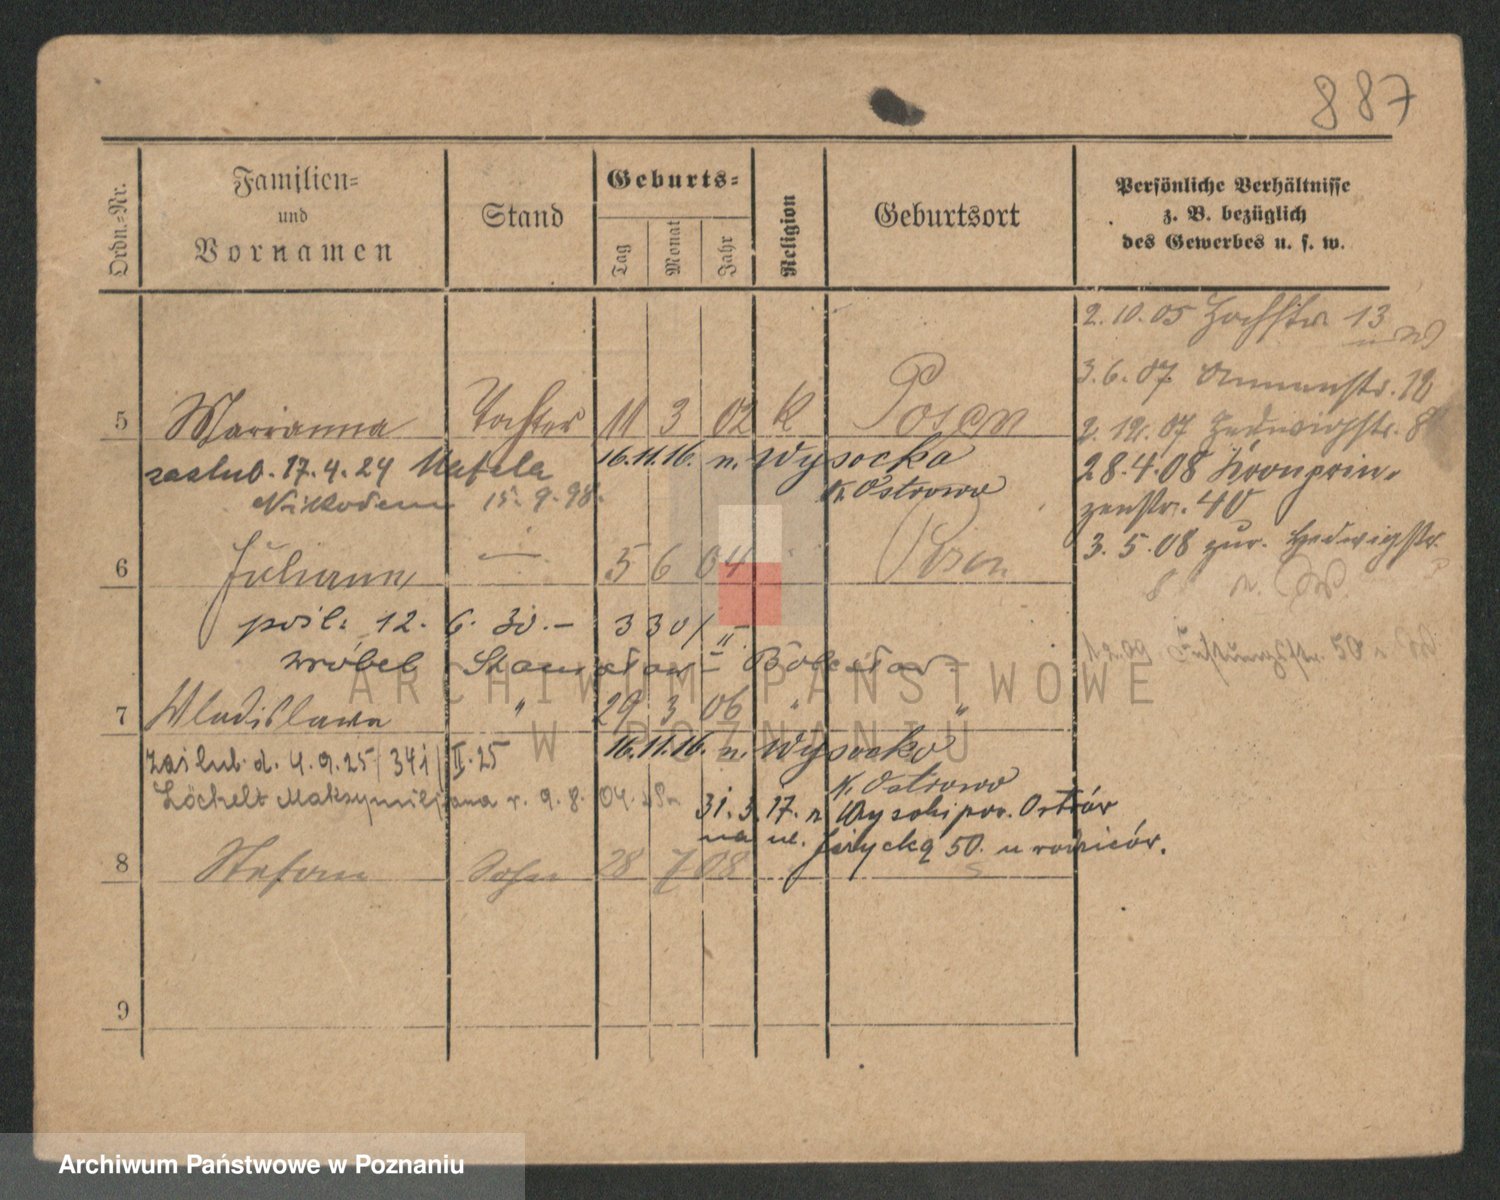 887
Ordn.-Nr.
Familien-
und
Vornamen
Stand
Geburts-
Tag
Monat
Jahr
Religion
Geburtsort
Persönliche Verhältnisse
z. B. bezüglich
des Gewerbes u. s. w.
2.10.05 Hochstr. 13
3.6.07. Annenstr. 12
5 Marianna Tochter 11 3 02 K Posen
2.12.07 Hedwigstr. 8
zaslub. 17.4.24 Matela 16.11.16. n. Wysocko
28.4.08 Kronprin-
Nikodem 15.9.98. K. Ostrowo
zenstr. 40
3.5.08 zur. Hedwigstr.
8
6 Juliann — 5 6 04 Posen
pośl. 12. 6. 30.- 330/II
50
Wróbel Stanisław - Bolesław
7 Wladislawa " 29 3 06 " "
zaślub. d. 4.9.25/341/II.25 16.11.16. n. Wysocko
K. Ostrowo
Löchelt Maksymiljana r. 9.8. 04.
31.3.17. z Wysocki pow. Ostrów
na ul. Żerycką 50. u rodziców.
8 Stefan Sohn 28 7 08
9
ARCHIWUM PAŃSTWOWE
W POZNANIU
Archiwum Państwowe w Poznaniu